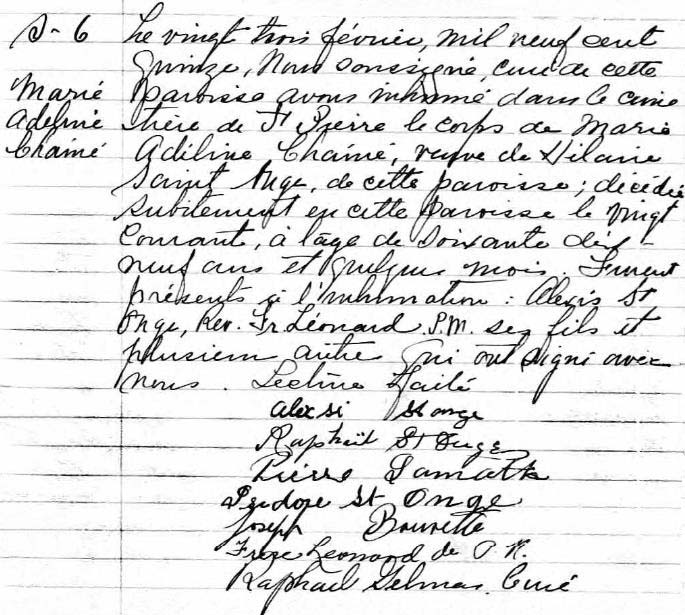 S-6
Marie
Adeline
Chainé
Le vingt trois février, mil neuf cent
quinze, Nous soussigné, curé de cette
paroisse avons inhumé dans le cime
tière de St Pierre le corps de Marie
Adéline Chainé, veuve de Hilaire
Saint Onge, de cette paroisse; décédée
subitement en cette paroisse le vingt
courant, à l'âge de soixante dix-
neuf ans et quelques mois. Furent
présents à l'inhumation: Alexis St
Onge, Rev. Fr Léonard P.M. ses fils et
plusieurs autre qui ont signé avec
nous. Lecture faite
Alexsi St onge
Raphaël St Onge
Pierre
Isidore St Onge
Joseph
Frère Léonard de P. M.
Raphael Gelinas Curé